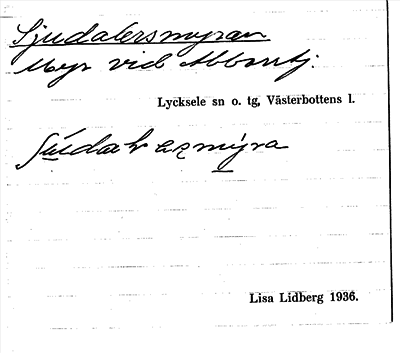 Sjudalersmyran
Myr vid Abborrtj.
Lycksele sn o. tg, Västerbottens l.
Lisa Lidberg 1936.